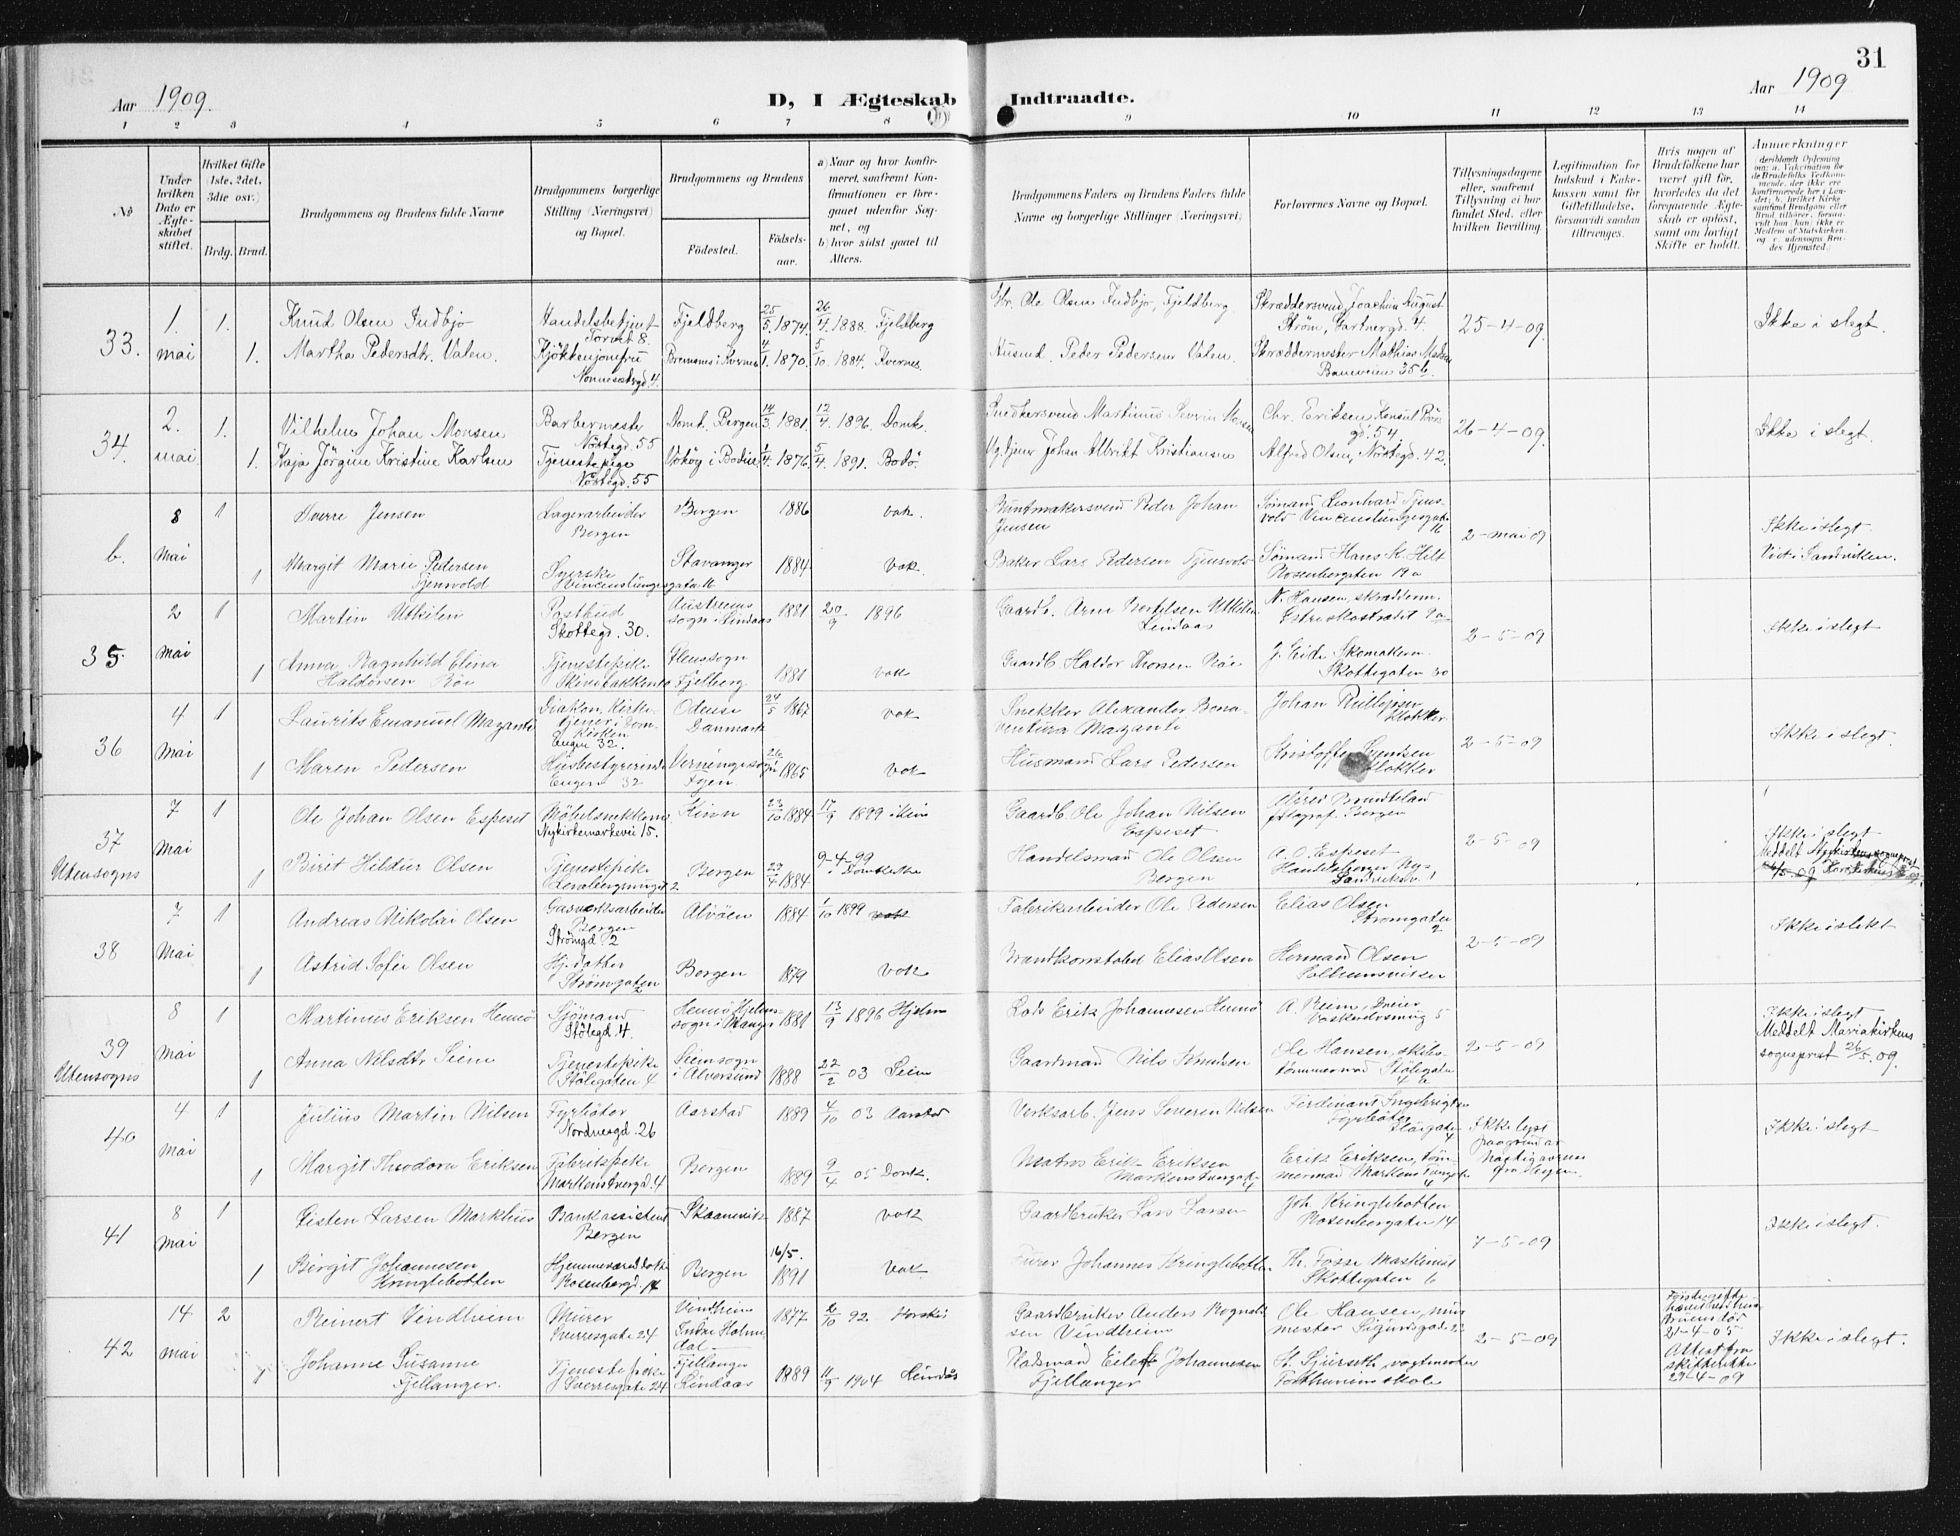 31
Aar 1909.
D, I Ægteskab Indtraadte.
Aar 1909
1 2 3 4 5 6 7 8 9 10 11 12 13 14
No
Under hvilken Dato er Ægteskabet stiftet.
Hvilket Gifte (1ste, 2det, 3die osv.)
Brdg. Brud.
Brudgommens og Brudens fulde Navne
Brudgommens borgerlige Stilling (Næringsvei) og Bopæl.
Brudgommens og Brudens
Födested.
Födselsaar.
a) Naar og hvor konfirmeret, saafremt Konfirmationen er foregaaet udenfor Sognet, og
b) hvor sidst gaaet til Alters.
Brudgommens Faders og Brudens Faders fulde Navne og borgerlige Stillinger (Næringsvei)
Forlovernes Navne og Bopæl.
Tillysningsdagene eller, saafremt Tillysning ei har fundet Sted, efter hvilken Bevilling.
Legitimation for Indskud i Enkekassen samt for Giftetilladelse, forsaavidt saadan tiltrænges.
Hvis nogen af Brudefolkene har været gift før, hvorledes da det foregaaende Ægteskab er opløst, samt om lovligt Skifte er holdt.
Anmerkninger
33. 1. mai 1.
Knud Olsen Indbjo Handelsbetjent Torvet 8. Fjeldberg 25/5 1874 26/4 1888. Fjeldberg
Ole Olsen Indbjo, Fjeldberg. Skræddersvend Joachim August Strøm, Gartnergd. 4. 25-4-09. Ikke i slegt.
1. Martha Pedersdtr. Valen. Kjökkenjomfru Nonnesætergd. 4 4/1 1870. 5/10 1884. Kvernes.
Husmd. Peder Pedersen Valen. Skræddermester Mathias Madsen
34. 2. mai 1.
Vilhelm Johan Monsen Barbermester Nöstegd. 55 Domk. Bergen 14/3 1881 12/4 1896. Domk.
Snedkersvend Martinus Severin Monsen Chr. Eriksen, Konsul Børsgd. 54 26-4-09. Ikke i slegt.
1. Kaja Jörgine Kristine Karlsen Tjenestepige Nöstegd. 55 1/4 1876 5/4 1891. Bodö.
Johan Albrikt Kristiansen Alfred Olsen, Nöstegd. 42.
b. 8 Mai 1
Sverre Jensen Lagerarbeider Bergen Bergen 1886 vak.
Buntmakersvend Peder Johan Jensen Sømand Leonhard Tjensvold 2-mai 09 Ikke i slegt
Viet i Sandviken.
1 Margit Marie Pedersen Tjensvold Syerske Stavanger 1884 Vak.
Baker Lars Pedersen Tjensvold Sømand Hans K. Hilt Rosenbergaten 19a
35. 2 Mai 1
Martin Utkilen Postbud Skottegd. 30. Austreims sogn Lindaas 1881 20/9 1896
Gaardb. Arne Bertelsen Utkilen Lindaas N. Hansen, skrædderm. 2-5-09 Ikke i slegt
1 Anna Ragnhild Elina Haldorsen Röe Tjenestepike Fjelberg 1881 vak
Gaardb. Haldor Thorsen Röe J. Eide Skomakerm. Skottegaten 30
36 4 Mai 1
Laurits Emanuel Mazanti Diakon, Kirketjener i Domkirken Engen 32. Odense Danmark 24/5 1867 vak
Snekker Alexander Bonaventura Mazanti Johan Klokker 2-5-09 Ikke i slegt.
1 Maren Pedersen Husbestyrerinde Engen 32 Fyen 26/ 1865 vak
Husmand Lars Pedersen Kristoffer Svendsen Klokker
37 Utensogns 7 Mai 1
Ole Johan Olsen Espeset Möbelsnekker Nykirkemarksvei 15. Kinn 23/10 1884 17/9 1899 i Kinn
Gaardb. Ole Johan Nilsen Espeset Alfred Brundtland fotograf. Bergen 2-5-09 Ikke i slegt
1 Birit Hildur Olsen Tjenestepike Bergen 27/4 1884 9-4-99 i Domkirken
Handelsmand Ole Olsen Bergen A. O. Espeset
38 7 Mai 1
Andreas Nikolai Olsen Gasverksarbeider Bergen Strömgd. 2 Alvöen 1884 1/10 1899 vak
Fabrikarbeider Ole Pedersen Elias Olsen Strömgaten 2 2-5-09 Ikke i slekt
1 Astrid Sofie Olsen Hj. datter Strömgaten 2 Bergen 1879 vak
Brandkonstabel Elias Olsen Herman Olsen
39 Utensogns 8 Mai 1
Martinus Eriksen Hennö Sjömand Stölegd. 4. Hennö Hjelmsogn i Manger 1881 13/9 1896 Hjelm
Lods Erik Johannesen Hennö A. Reim, Dreier 5 2-5-09 Ikke i slegt
Meddelt Mariakirkens sogneprest 26/5. 09.
1 Anna Nilsdtr Seim Tjenestepike Stölegaten 4 Seim sogn i Alversund 1888 22/2 03 Seim
Gaardmand Nils Knudsen Ole Hansen, skibstömmermand Stölegaten 4a
40 4 Mai 1
Julius Martin Nilsen Fyrböter Nordnesgd. 26 Aarstad 1889 4/10 03 Aarstad
Verksarb. Jens Severin Nilsen Ferdinant Ingebrigtsen Fyrböter 4 Ikke lyst paa grund av Ikke i slegt
1 Margit Theodora Eriksen Fabrikspike Bergen 1889 9/4 05 Domk.
Matros Erik Eriksen Erik Eriksen, tömmermand
41 8 Mai 1
Gisten Larsen Markhus Bankassistent Bergen Skaanevik 1887 vak
Gaardbruker Lars Larsen Joh. Kringlebotten Rosenbergaten 14 7-5-09 Ikke i slegt.
1 Birgit Johannesen Kringlebotten Hjemmeværende dtr. Rosenbergd. 14 Bergen 16/5. 1891 Vak
Furer Johannes Kringlebotten Th. Fosse Maskinist Skottegaten 6
42 14 mai 2
Reinert Vindheim Murer Sverresgate 24 Vindheim Indre Holmedal 1877 2/10 92
Gaardbruker Anders Rognaldsen Vindheim Ole Hansen, murmester Sigurdsgade 22 2-5-09 21-4-05 Attest fra skifteretten 29-4-09 Ikke i slegt.
1 Johanne Susanne Fjellanger. Tjenestepike Sverresgate 24 Fjellanger Lindaas 1889 11/9 1904 Lindås
Pladsmand Eilert Johannesen Fjellanger St. Sjurseth, vagtmester skole